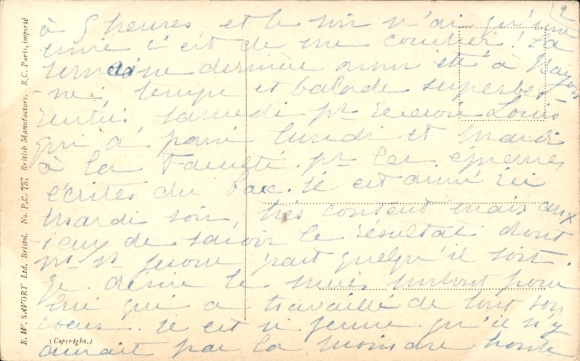 2
à 5 heures et le soir n'ai qu'une
envie c'est de me coucher. La
semaine dernière avons été à
temps et balade superbes
rentrés samedi pr recevoir Louis
qui a passé lundi et mardi
à la Faculté pr les épreuves
écrites du Bac. Il est arrivé ici
mardi soir, très content mais anx
ieux de savoir le résultat dont
ns ferons part quelqu'il soit.
Je désire le surtout pour
lui qui a travaillé de tout son
coeur. Il est si jeune qu'il n'y
aurait pas la moindre honte
E. W. SAVORY Ltd. Bristol. No. P.C. 757 British Manufacture. R.C. Paris, importé
(Copyright.)